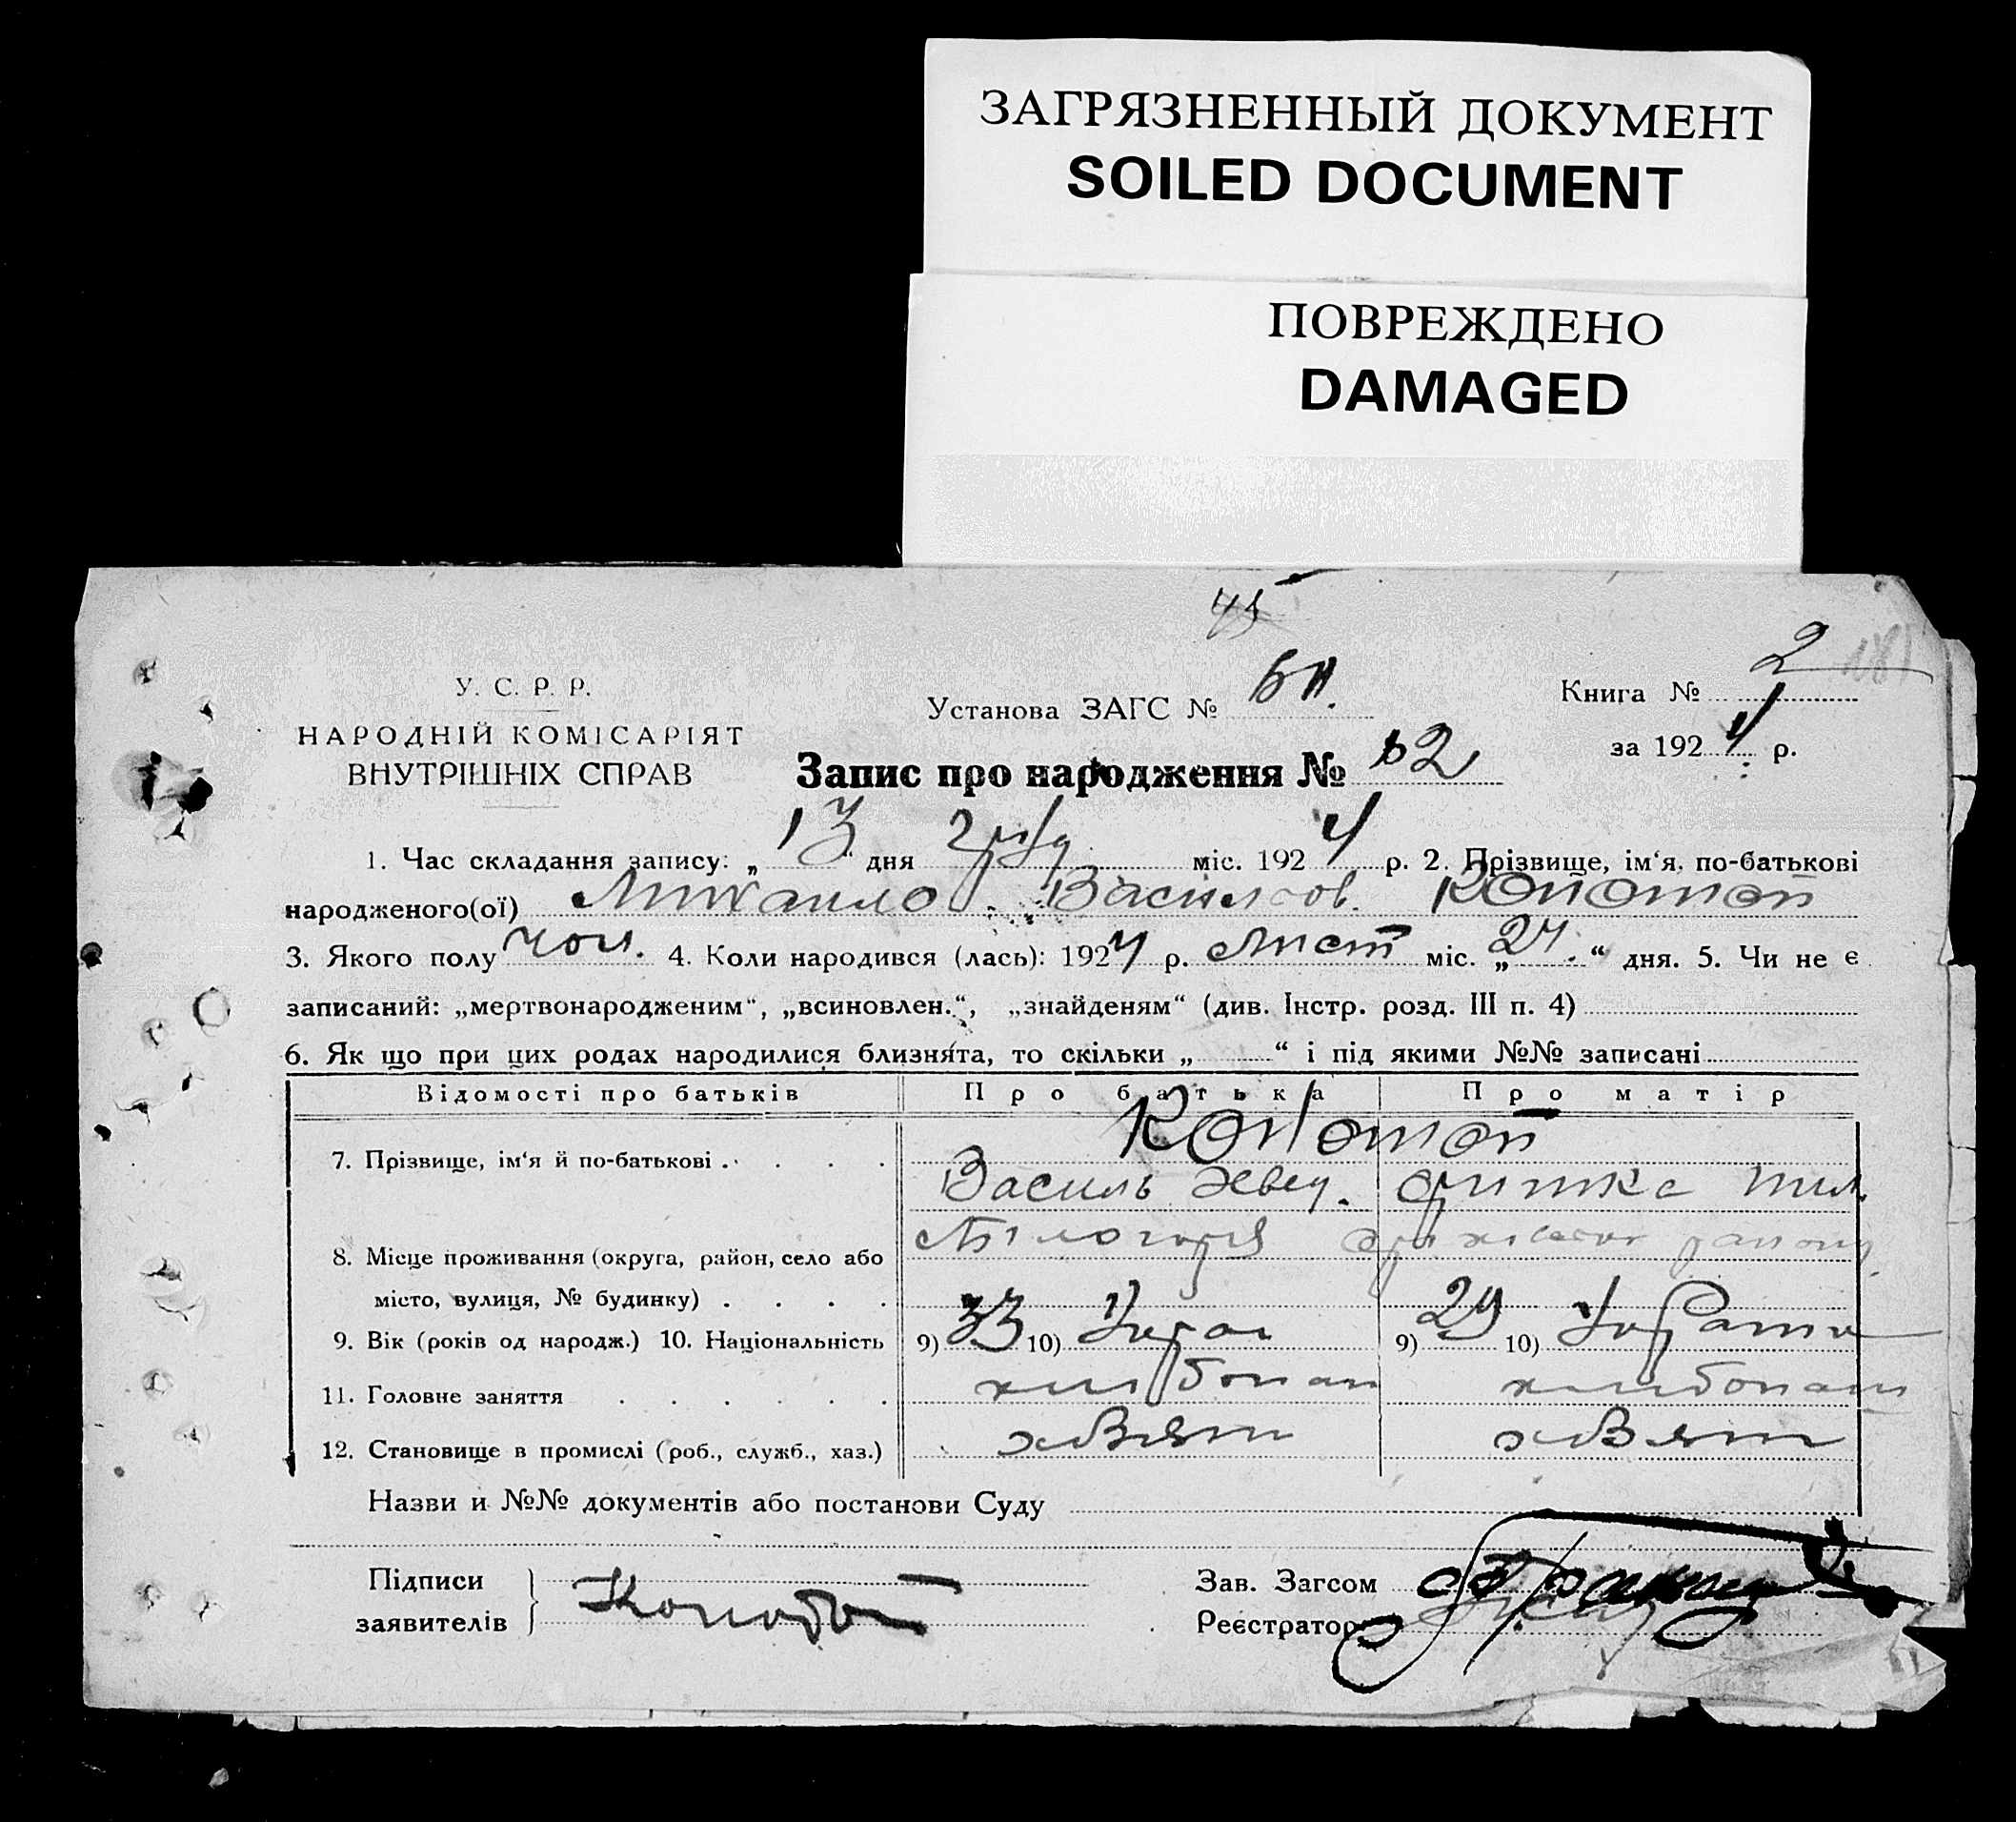 ЗАГРЯЗНЕННЫЙ ДОКУМЕНТ
SOILED DOCUMENT
ПОВРЕЖДЕНО
DAMAGED
45
У. С. Р. Р.
НАРОДНІЙ КОМІСАРІЯТ
ВНУТРІШНІХ СПРАВ
Установа ЗАГС №
Книга № 2
за 1924 р.
Запис про народження №
1. Час складання запису: „13“ дня груд міс. 1924 р. 2. Прізвище, ім‘я, по-батькові
народженого(ої) Михайло Васильов. Конотоп
3. Якого полу чол. 4. Коли народився (лась): 1924 р. Лист міс. „24.“ дня. 5. Чи не є
записаний: „мертвонародженим“, „всиновлен.“, „знайденям“ (див. Інстр. розд. III п. 4)
6. Як що при цих родах народилися близнята, то скільки „ “ і під якими №№ записані
Відомості про батьків Про батька Про матір
7. Прізвище, ім‘я й по-батькові . . . . Конотоп
Василь Хвед.
8. Місце проживання (округа, район, село або Білогоря району
місто, вулиця, № будинку) . . . .
9. Вік (років од народж.) 10. Національність 9) 33 10) 9) 29 10)
11. Головне заняття . . . . . . хлібопаш хлібопаш
12. Становище в промислі (роб., служб., хаз.)
Назви и №№ документів або постанови Суду
Підписи
заявителів } Конотоп
Зав. Загсом
Реєстратор